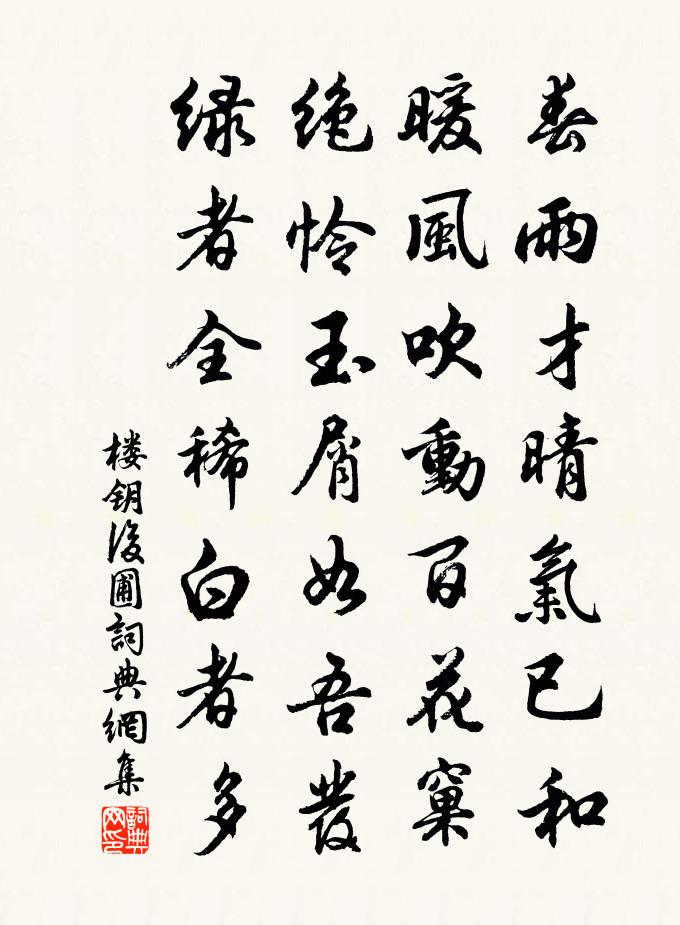 春雨才晴氣已和
暖風吹動百花窠
绝怜玉屑如吾發
绿者全稀白者多
楼钥後圃詞典網集
詞典网印